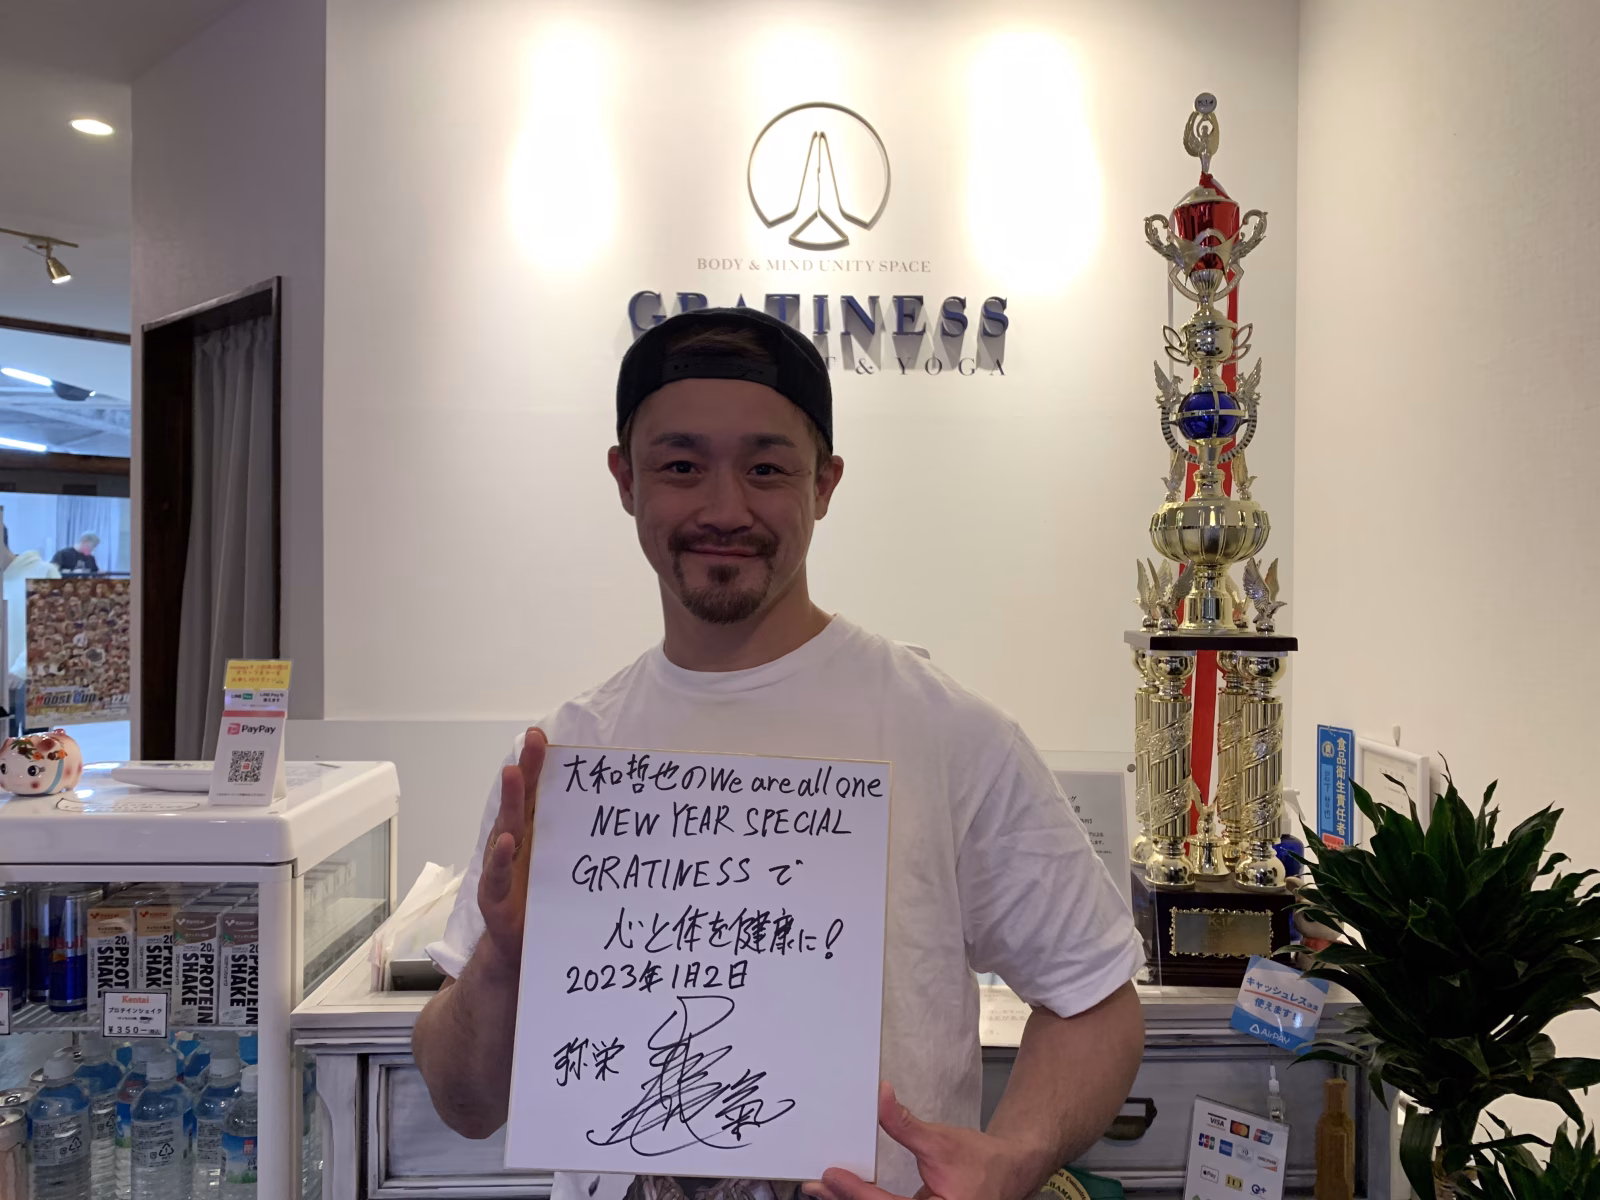 BODY & MIND UNITY SPACE
GRATINESS
T & YOGA
大和哲也のWe are all one
NEW YEAR SPECIAL
GRATINESSで
心と体を健康に!
2023年1月2日
弥栄
氣
LINE Pay
PayPay
MOOSE CUP
20g PROTEIN SHAKE
20g PROTEIN SHAKE
20g PROTEIN SHAKE
20g PROTEIN SHAKE
Kentai
プロテインシェイク
¥350-
食品衛生責任者
キャッシュレス決済
使えます!
AirPAY
VISA
JCB
Pay
iD